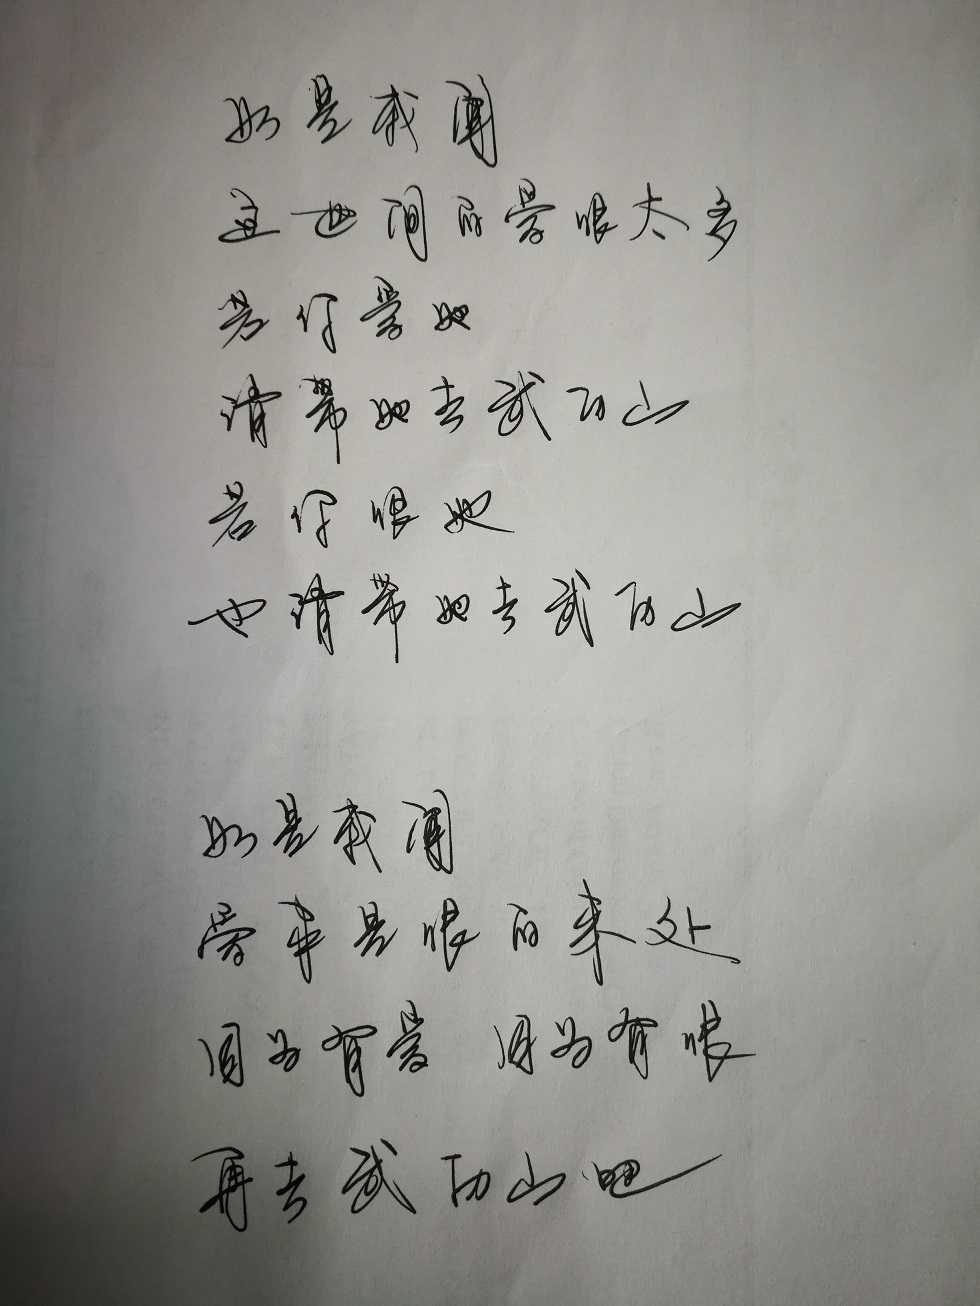 如是我闻
这世间的爱恨太多
若你爱她
请带她去武功山
若你恨她
也请带她去武功山
如是我闻
爱本是恨的来处
因为有爱 因为有恨
再去武功山吧